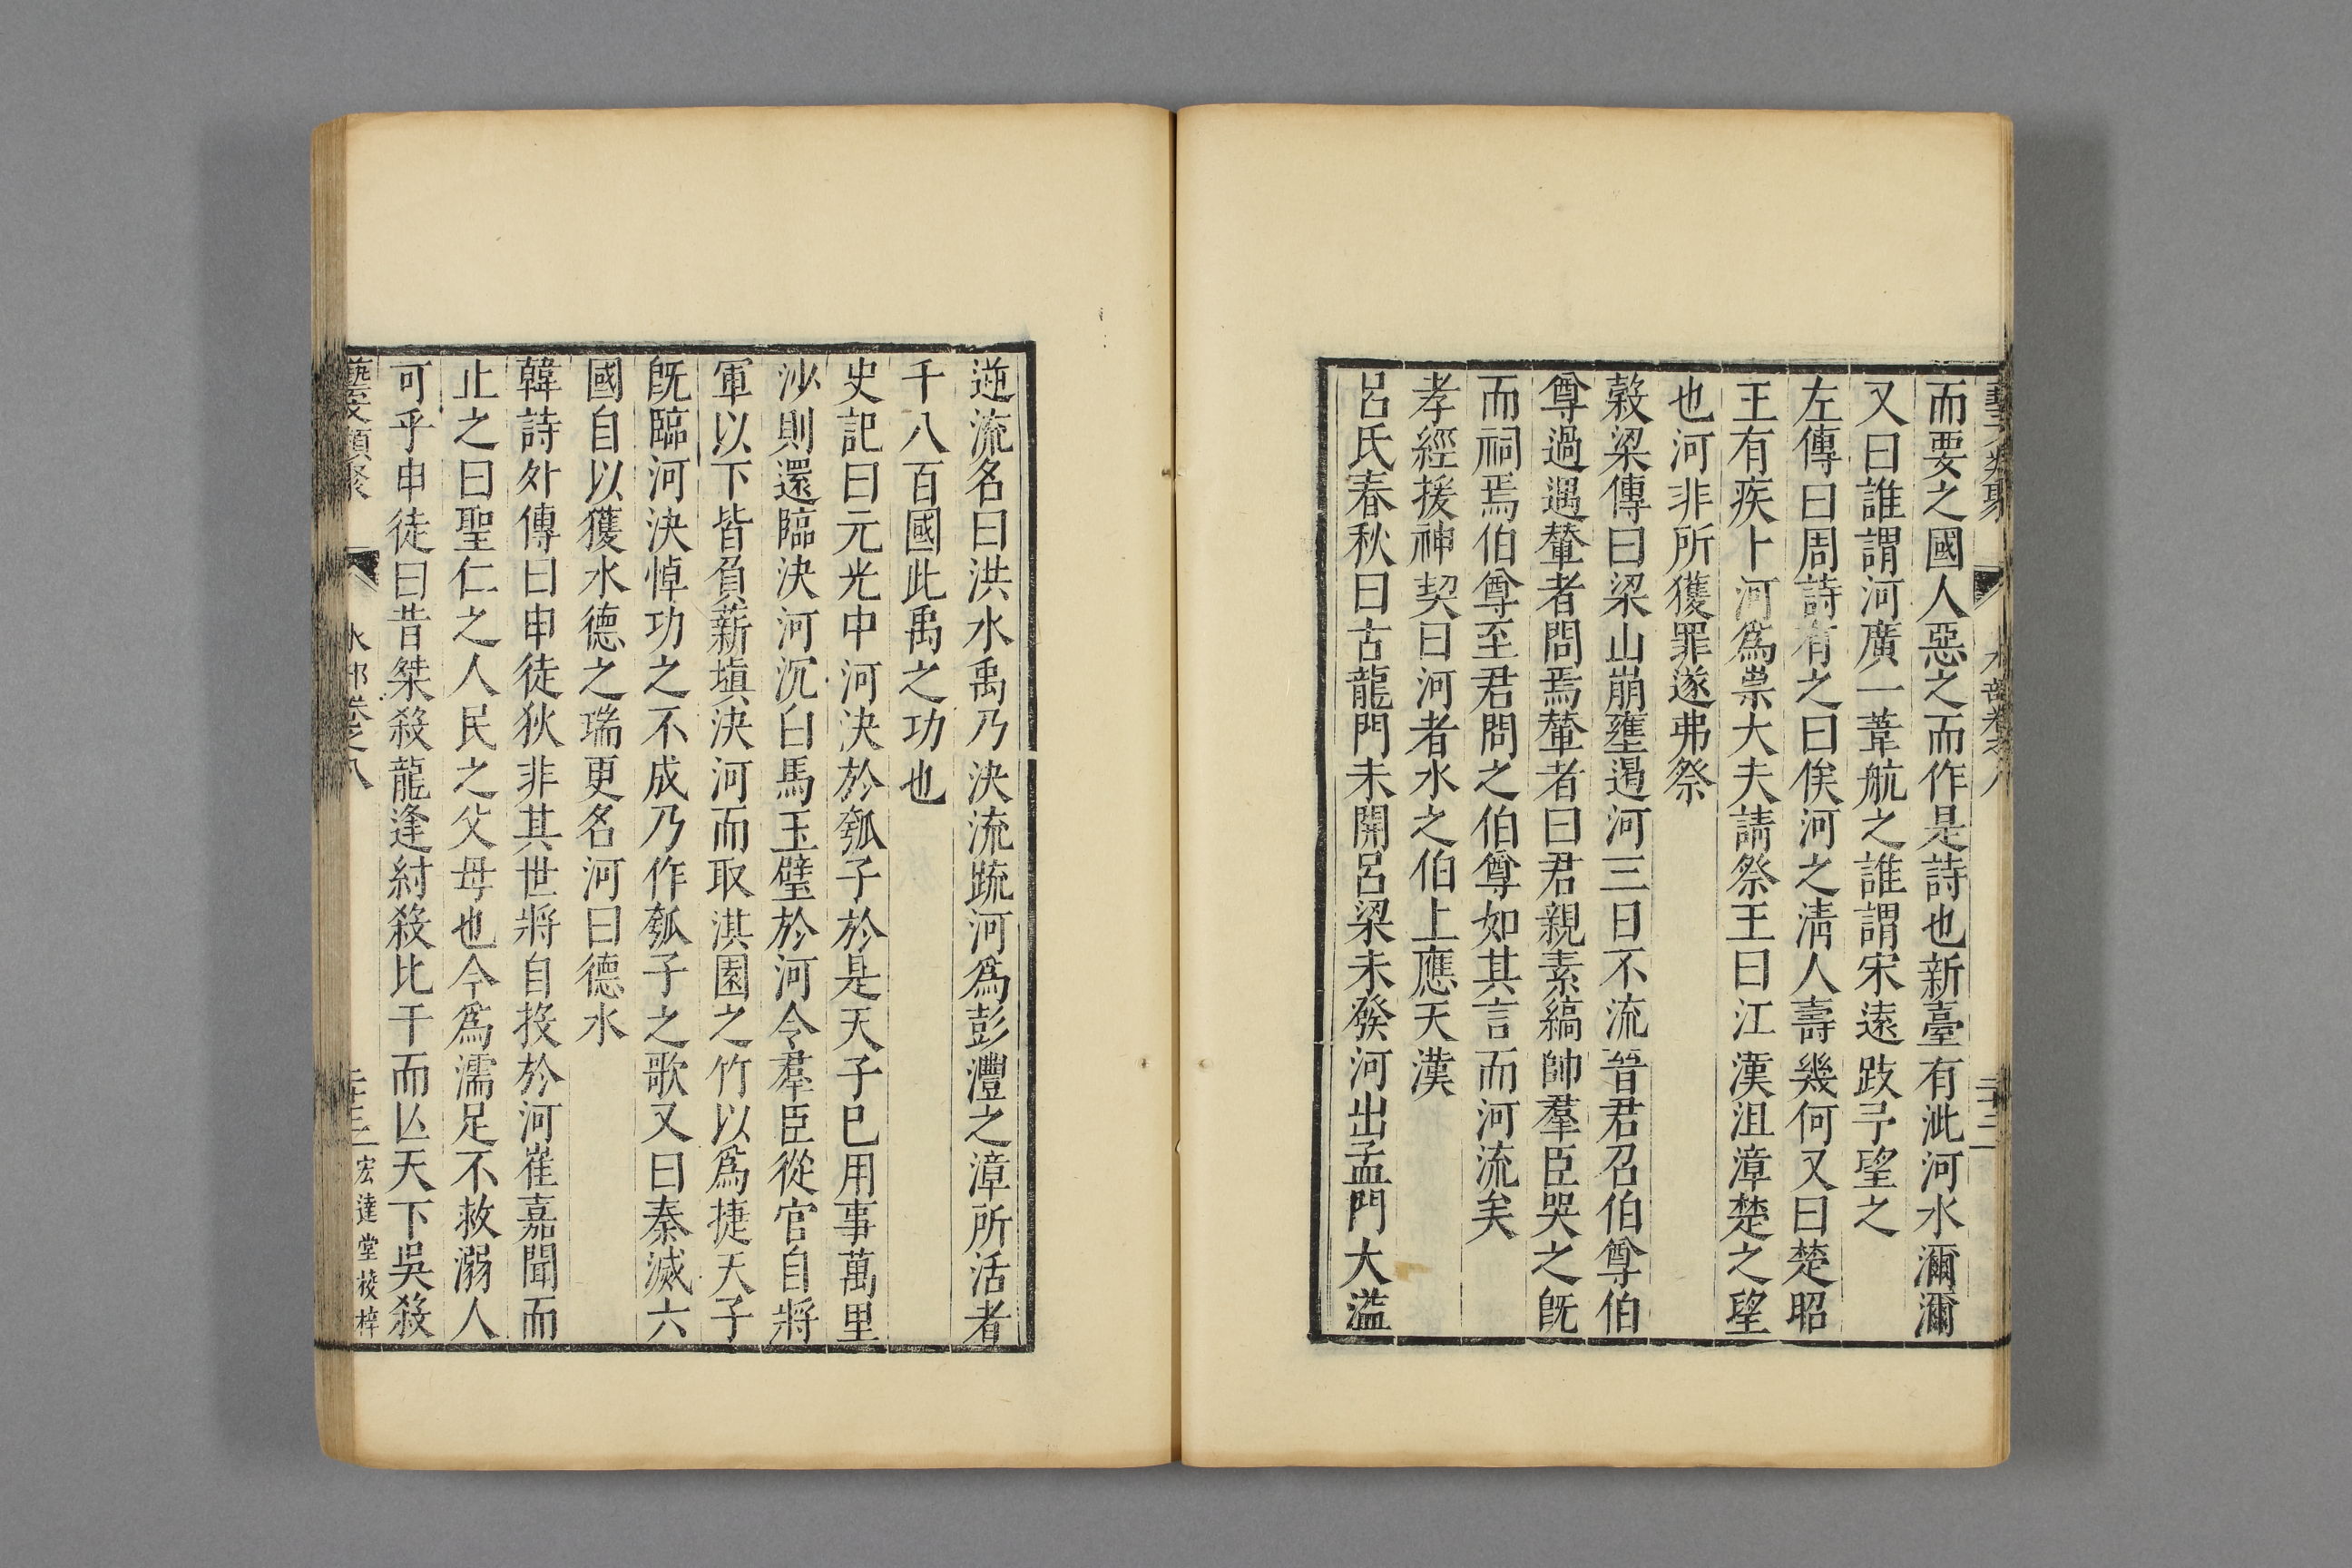 而要之國人惡之而作是詩也新臺有泚河水瀰瀰
又曰誰謂河廣一葦航之誰謂宋遠跂予望之
左傳曰周詩有之曰俟河之淸人壽幾何又曰楚昭
王有疾卜河爲祟大夫請祭王曰江漢沮漳楚之望
也河非所獲罪遂弗祭
穀梁傳曰梁山崩壅遏河三日不流晉君召伯尊伯
尊過遇輦者問焉輦者曰君親素縞帥羣臣哭之旣
而祠焉伯尊至君問之伯尊如其言而河流矣
孝經援神契曰河者水之伯上應天漢
呂氏春秋曰古龍門未開呂梁未發河出孟門大溢
逆流名曰洪水禹乃決流疏河爲彭灃之漳所活者
千八百國此禹之功也
史記曰元光中河決於瓠子於是天子巳用事萬里
沙則還臨決河沉白馬玉璧於河令羣臣從官自將
軍以下皆負薪塡決河而取淇園之竹以爲捷天子
旣臨河決悼功之不成乃作瓠子之歌又曰秦滅六
國自以獲水德之瑞更名河曰德水
韓詩外傳曰申徒狄非其世將自投於河崔嘉聞而
止之曰聖仁之人民之父母也今爲濡足不救溺人
可乎申徒曰昔桀殺龍逢紂殺比干而亾天下吳殺
藝文類聚 水部卷之八 二十三 宏達堂校梓